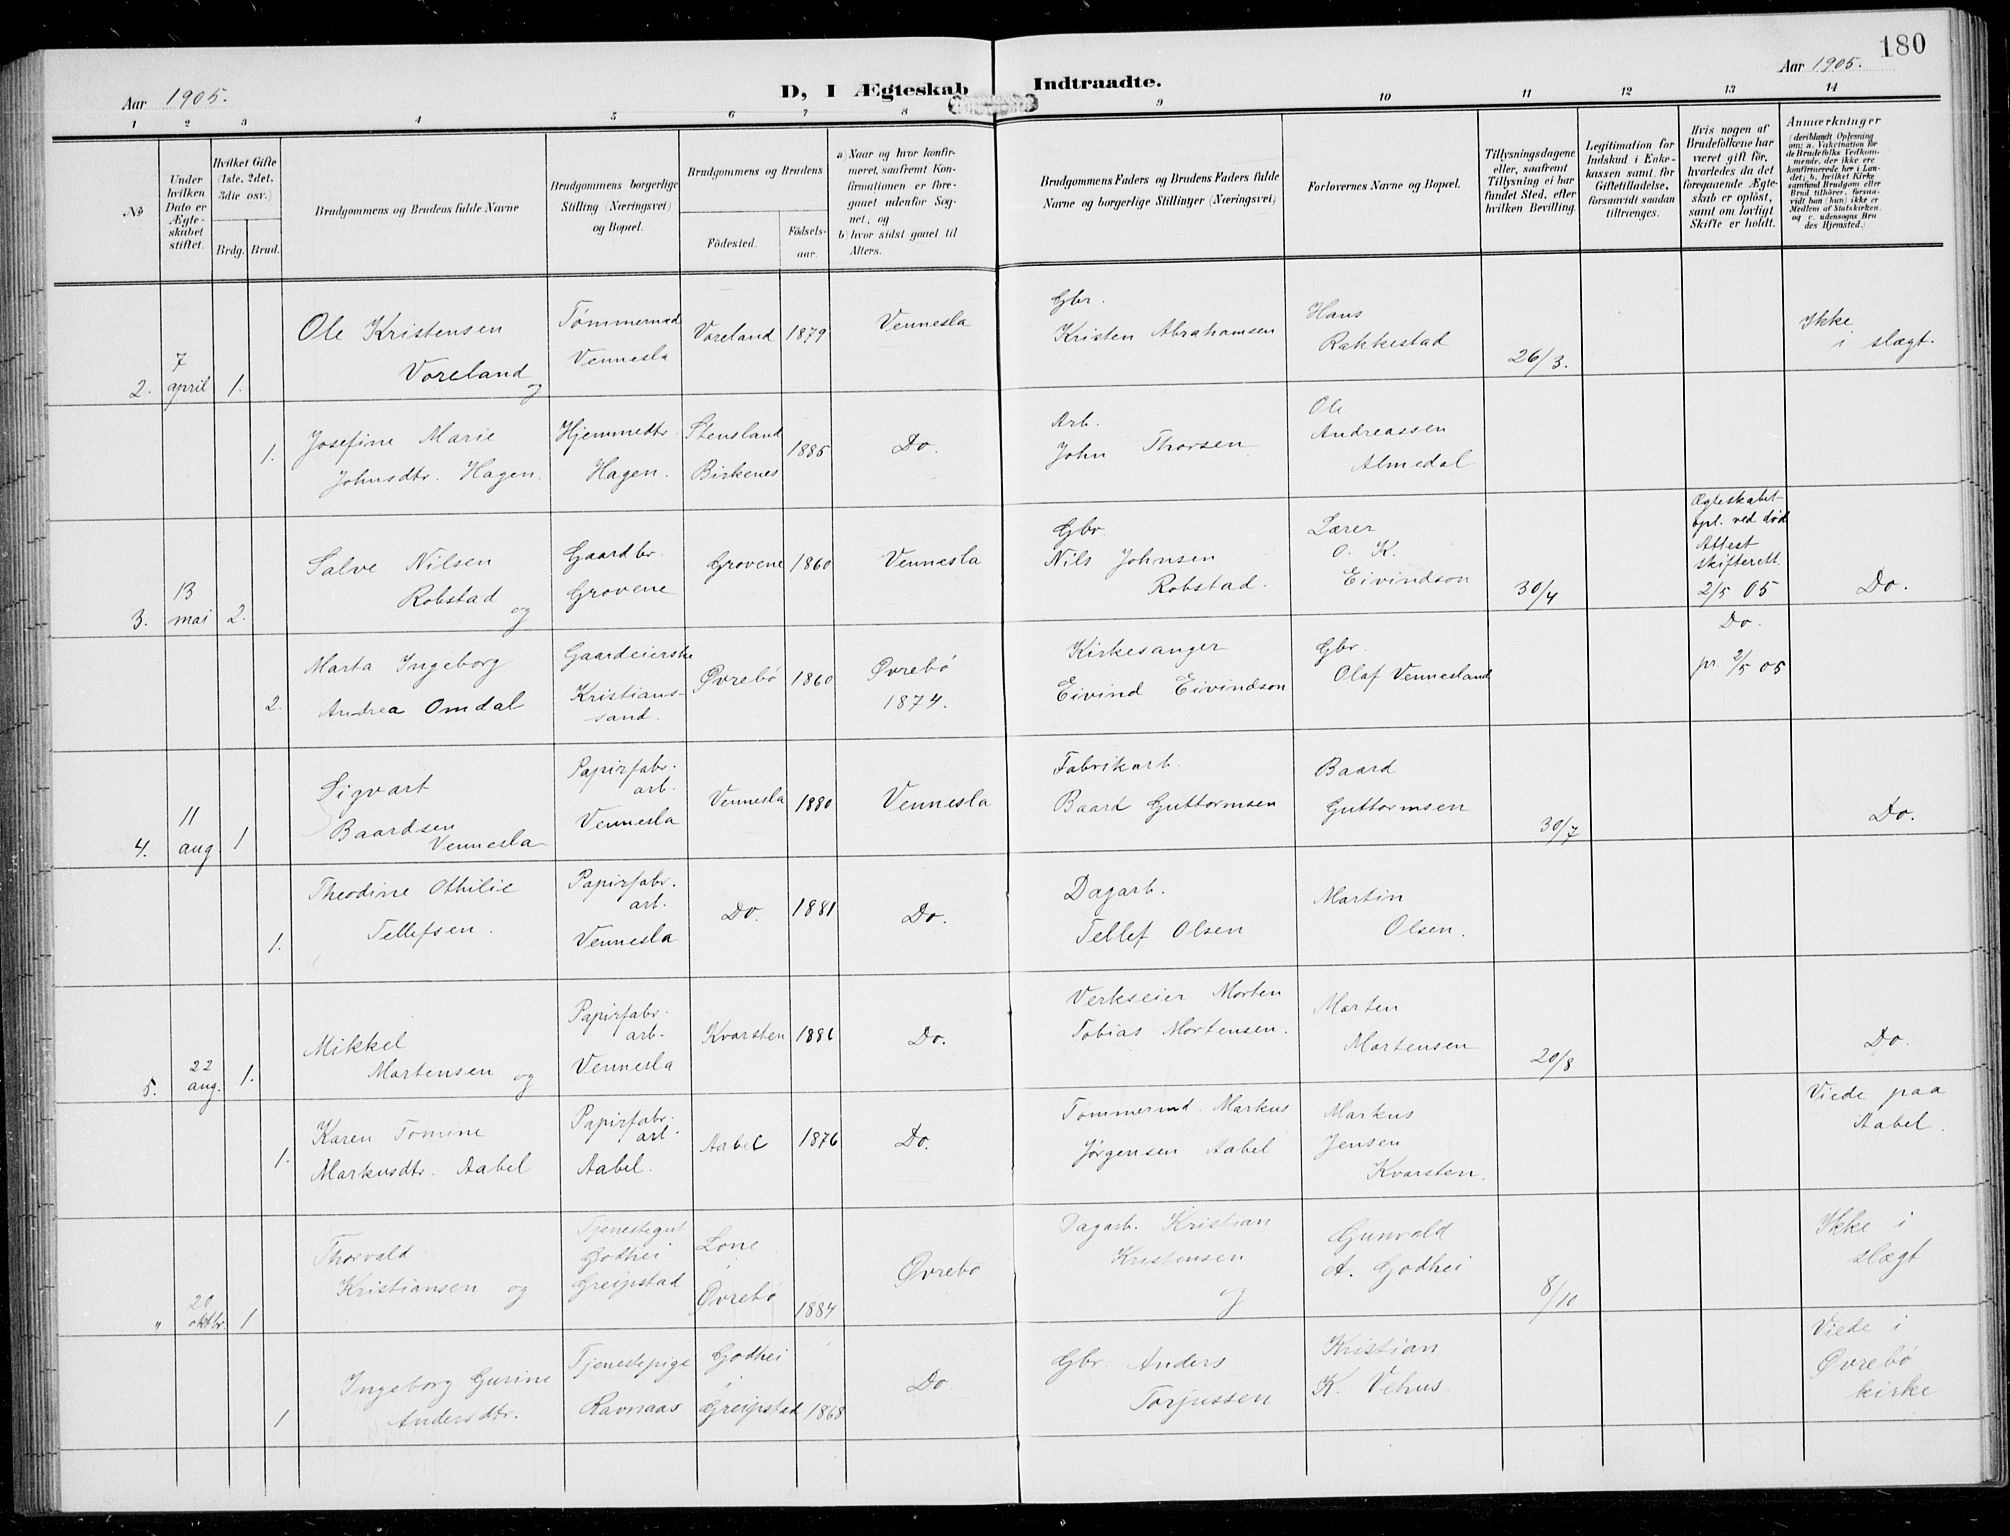 180
Aar 1905.
D, I Ægteskab Indtraadte.
Aar 1905.
1 2 3 4 5 6 7 8 9 10 11 12 13 14
No
Under hvilken Dato er Ægteskabet stiftet.
Hvilket Gifte (1ste, 2det, 3die osv.)
Brdg. Brud.
Brudgommens og Brudens fulde Navne
Brudgommens borgerlige Stilling (Næringsvei) og Bopæl.
Brudgommens og Brudens
Födested.
Födselsaar.
a) Naar og hvor konfirmeret, saafremt Konfirmationen er foregaaet udenfor Sognet, og
b) hvor sidst gaaet til Alters.
Brudgommens Faders og Brudens Faders fulde Navne og borgerlige Stillinger (Næringsvei)
Forlovernes Navne og Bopæl.
Tillysningsdagene eller, saafremt Tillysning ei har fundet Sted, efter hvilken Bevilling.
Legitimation for Indskud i Enkekassen samt for Giftetilladelse, forsaavidt saadan tiltrænges.
Hvis nogen af Brudefolkene har været gift för, hvorledes da det foregaaende Ægteskab er oplöst, samt om lovligt Skifte er holdt.
Anmærkninger
(deriblandt Oplysning om: a. Vakcination for de Brudefolks Vedkommende, der ikke ere konfirmerede her i Landet; b, hvilket Kirkesamfund Brudgom eller Brud tilhörer, forsaavidt han (hun) ikke er Medlem af Statskirken, og c. udensogns Brudes Hjemsted.)
2. 7 april 1. Ole Kristensen Voreland og
Tømmermd Vennesla
Voreland 1879 Vennesla
Gbr. Kristen Abrahamsen
Hans Rakkestad
26/3.
Ikke i slægt.
1. Josefine Marie Johnsdtr. Hagen.
Hjemmedtr. Hagen.
Stensland Birkenes 1885 Do.
Arb. John Thorsen
Ole Andreassen Almedal
3. 13 mai 2. Salve Nilsen Robstad og
Gaardbr. Grovene
Grovene 1860 Vennesla
Gbr. Nils Johnsen Robstad.
Lærer O. K. Eivindson
30/4
Ægteskabet opl. ved død Attest skifterett. 2/5 05
Do.
2. Marta Ingeborg Andrea Omdal
Gaardeierske Kristianssand.
Øvrebø 1860 Øvrebø 1874.
Kirkesanger Eivind Eivindson
Gbr. Olaf Vennesland
Do. pr. 2/5 05
4. 11 aug. 1 Sigvart Baardsen Vennesla
Papirfabr. arb. Vennesla
Vennesla 1880 Vennesla
Fabrikarb. Baard Guttormsen
Baard Guttormsen
30/7
Do.
1. Theodine Othilie Tellefsen.
Papirfabr. arb. Vennesla
Do. 1881 Do.
Dagarb. Tellef Olsen
Martin Olsen.
5. 22 aug. 1. Mikkel Mortensen og
Papirfabr. arb. Vennesla
Kvarsten 1886 Do.
Verkseier Morten Tobias Mortensen.
Morten Mortensen
20/8
Do.
1. Karen Tomine Markusdtr. Aabel
Papirfabr. arb. Aabel.
Aabel 1876 Do.
Tømmermd. Markus Jørgensen Aabel
Markus Jensen Kvarsten.
Viede paa Aabel.
" 20 oktbr. 1 Thorvald Kristiansen og
Tjenestegut Godhei Greipstad
Lone i Øvrebø 1884 Øvrebø
Dagarb. Kristian Kristensen og
Gunvald A. Godhei
8/10
Ikke i slægt
1 Ingeborg Gurine Andersdtr.
Tjenestepige Ravnaas
Godhei i Greipstad 1868 Do
Gbr. Anders Torjussen
Kristian K. Vehus
Viede i Øvrebø kirke